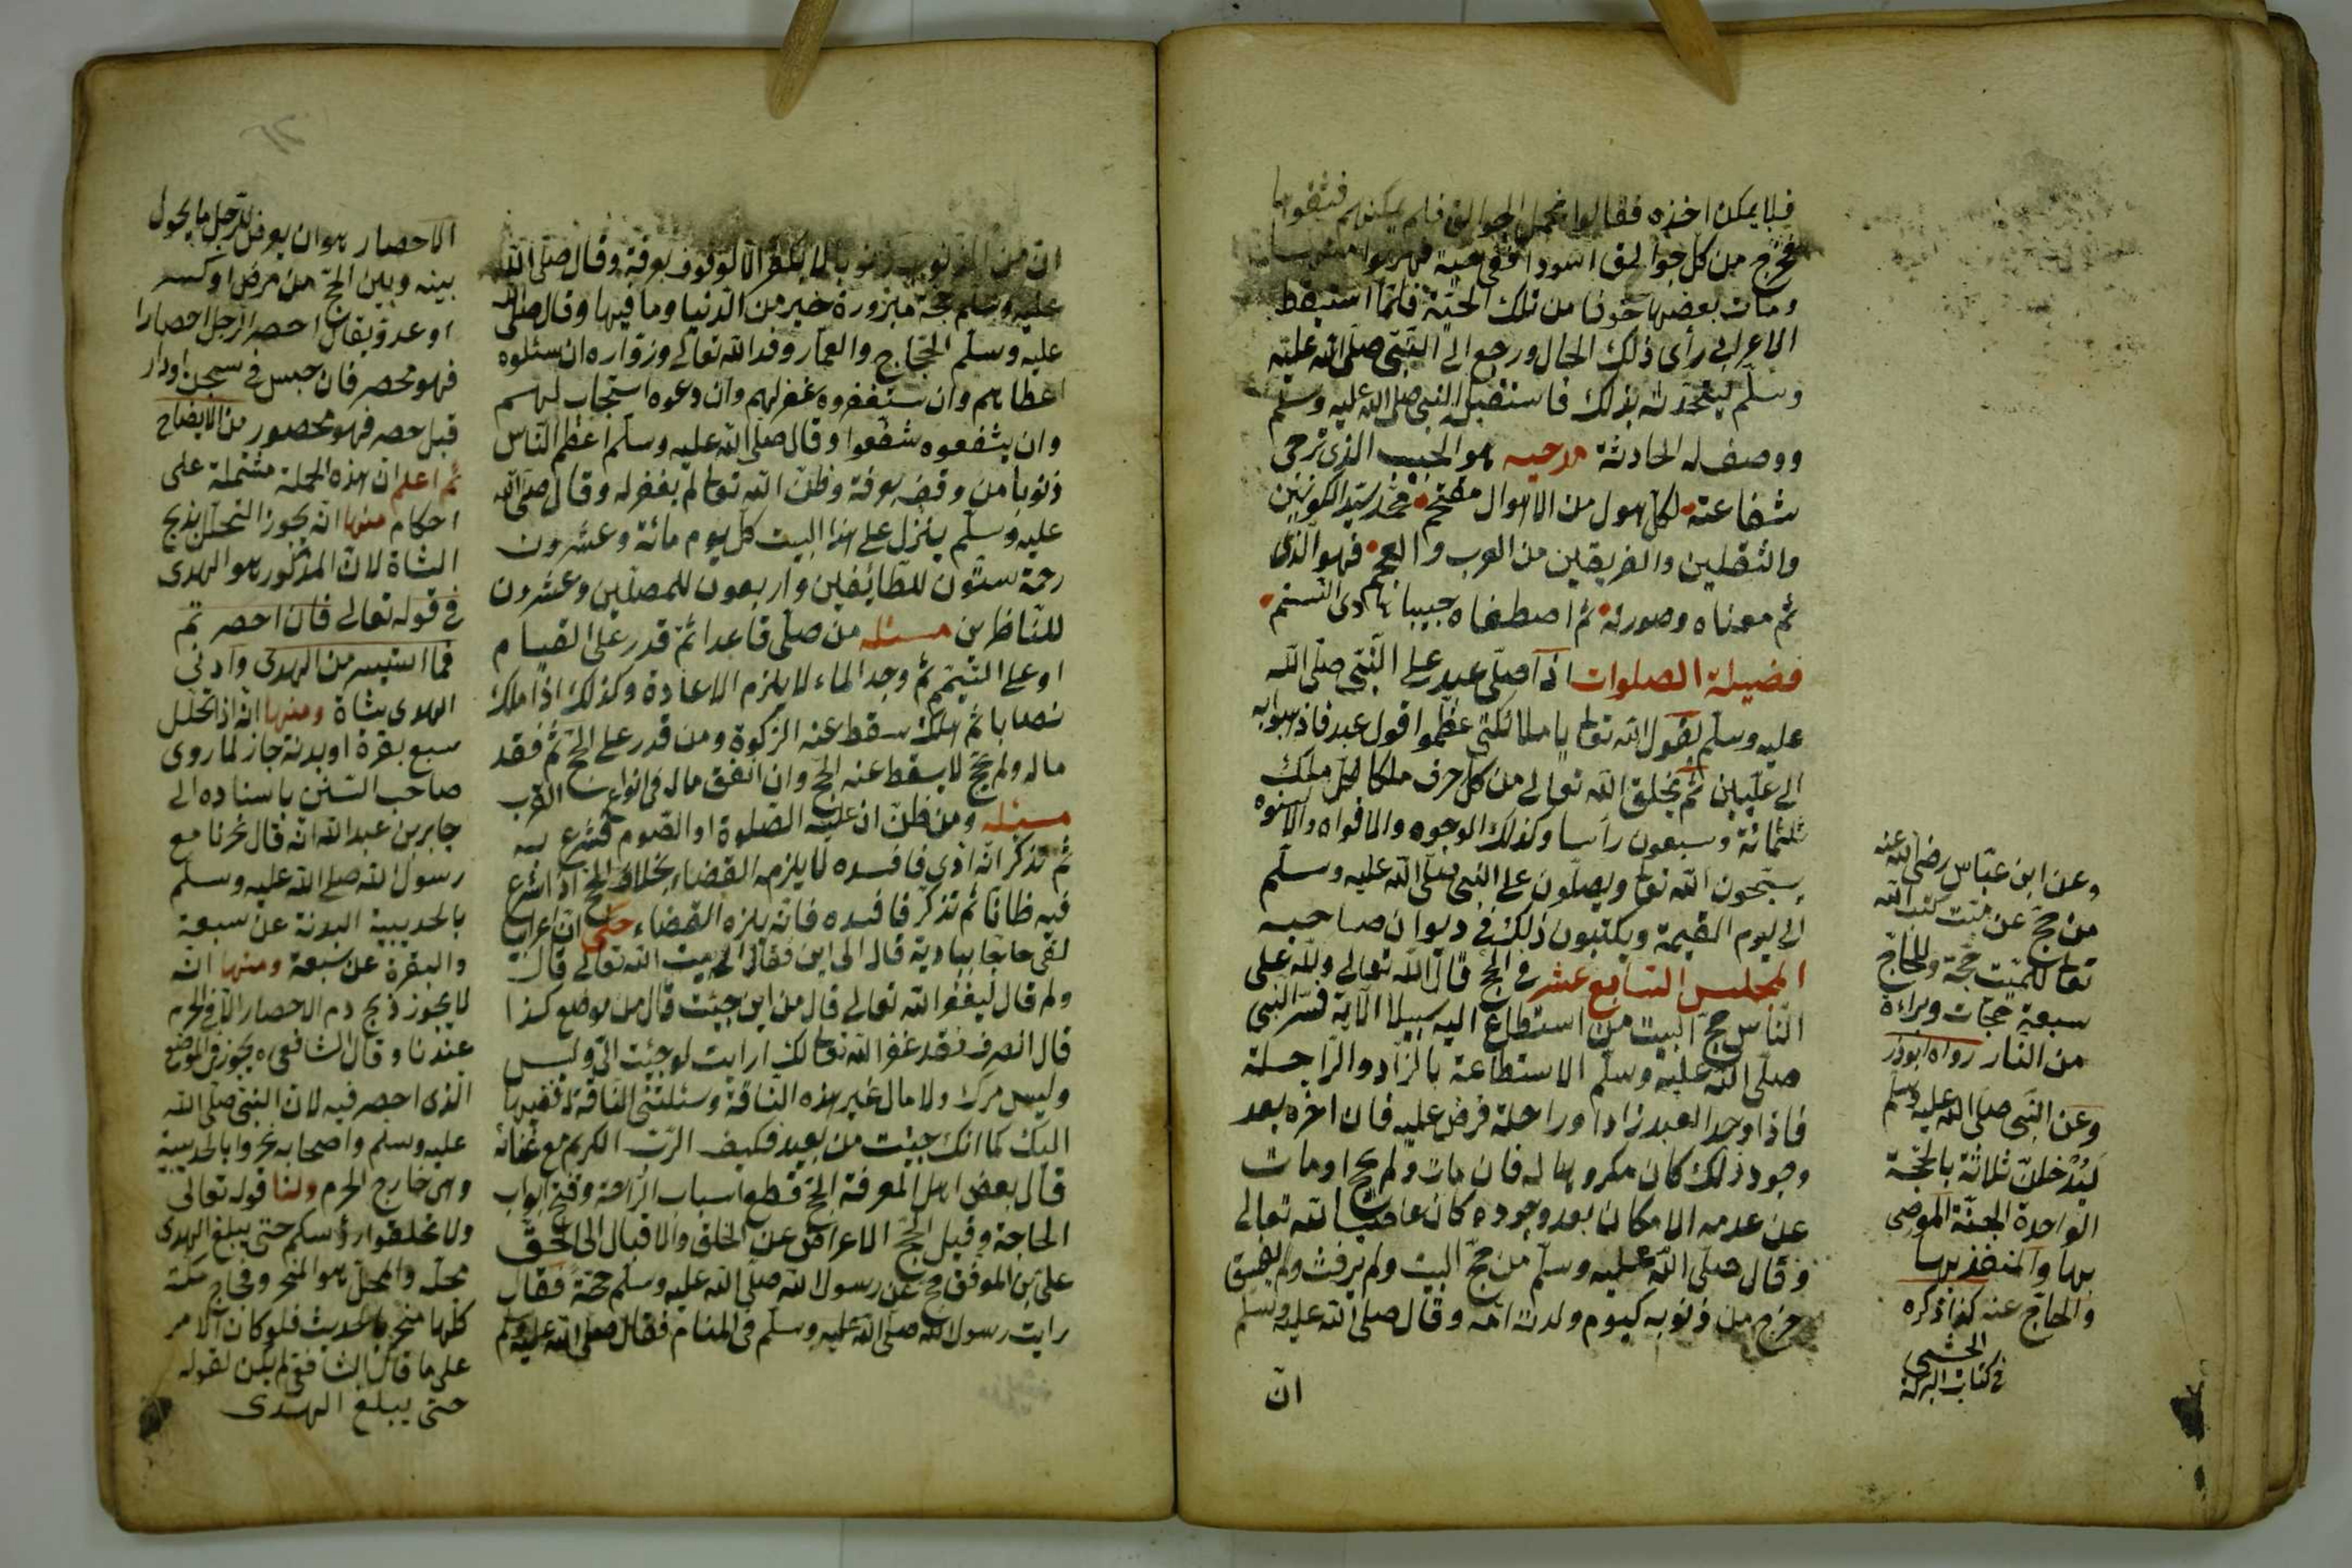 فلا يمكن اخذه فقالوا نحمل الجوالق فلم يمكنهم فشقوها
فخرج من كل جوالق اسود افقى حية فهربوا
ومات بعضها خوفا من تلك الحية فلما استيقظ
الاعرابى رأى ذلك الحال ورجع الى النبى صلى الله عليه
وسلم ليتحدث بذلك فاستقبل النبى صلى الله عليه وسلم
ووصف له الحادثة مدحيه هو الحبيب الذى ترجى
شفاعته لكل هول من الاهوال مقتحم محمد سيد الكونين
والثقلين والفريقين من العرب والعجم فهو الذى
تم معناه وصورته ثم اصطفاه حبيبا
فضيلة الصلوات اذا صلى عبد على النبى صلى الله
عليه وسلم يقول الله تعا يا ملائكتى عظموا قول عبد فاذهبوا به
الى عليين ثم يخلق الله تعالى من كل حرف ملكا لكل ملك
ثلثمائة وسبعون رأسا وكذلك الوجوه والافواه والالسنة
يسبحون الله تعا ويصلون على النبى صلى الله عليه وسلم
الى يوم القيمة ويكتبون ذلك فى ديوان صاحبه
المجلس التاسع عشر فى الحج قال الله تعالى ولله على
الناس حج البيت من استطاع اليه سبيلا الآية فسر النبى
صلى الله عليه وسلم الاستطاعة بالزاد والراحلة
فاذا وجد العبد زادا وراحلة فرض عليه فان اخره بعد
وجود ذلك كان مكروها له فان مات ولم يحج او مات
عن عدمه الامكان بعد وجوده كان عاصيا لله تعالى
وقال صلى الله عليه وسلم من حج البيت ولم يرفث ولم يفسق
خرج من ذنوبه كيوم ولدته امه وقال صلى الله عليه وسلم
ان
وعن ابن عباس رضى الله عنه
من حج عن ميت كتب الله
تعا للميت حجة وللحاج
سبعة حجات وبراءة
من النار رواه ابوذر
وعن النبى صلى الله عليه وسلم
ليدخلن ثلاثة بالحجة
الواحدة الجنة الموصى
بها والمنفذ بها
والحاج عنه كذا ذكره
فى كتاب البركة
ان من الذنوب ذنوبا لا يكفر الا الوقوف بعرفة وقال صلى الله
عليه وسلم حجة مبرورة خير من الدنيا وما فيها وقال صلى الله
عليه وسلم الحجاج والعمار وفد الله تعالى وزواره ان سئلوه
اعطاهم وان ستغفروه غفر لهم وان دعوه استجاب لهم
وان يشفعوه شفعوا وقال صلى الله عليه وسلم اعظم الناس
ذنوبا من وقف بعرفة وظن ان الله تعا لم يغفر له وقال صلى الله
عليه وسلم ينزل على هذا البيت كل يوم مائة وعشرون
رحمة ستون للطائفين واربعون للمصلين وعشرون
للناظرين مسئله من صلى قاعدا ثم قدر على القيام
او على التيمم ثم وجد الماء لا يلزم الاعادة وكذلك اذا ملك
نصابا ثم هلك سقط عنه الزكوة ومن قدر على الحج ثم فقد
ماله ولم يحج لا يسقط عنه الحج وان انفق ماله فى انواع القرب
مسئله ومن ظن ان عليه الصلوة او الصوم فشرع به
ثم تذكر انه ادى فافسده لا يلزمه القضاء بخلاف الحج اذا شرع
فيه ظانا ثم تذكر فافسده فانه يلزه القضاء حكى ان اعرابى
لقى حاجا ببادية قال الى اين فقال الى بيت الله تعالى قال
ولم قال ليغفر الله تعالى قال من اين جيئت قال من موضع كذا
قال انصرف فقد غفر الله تعا لك ارايت لو جيئت الى وليس
وليس مرك ولا مال غير هذه الناقة وسئلتنى الناقة
اليك كما انك جيئت من بعيد فكيف الرب الكريم مع غنائه
قال بعض اهل المعرفة الحج قطع اسباب الراحة وفتح ابواب
الحاجة وقيل الحج الاعراض عن الخلق والاقبال الى الحق
على بن الموفق حج عن رسول الله صلى الله عليه وسلم حجة فقال
رايت رسول الله صلى الله عليه وسلم فى المنام فقال صلى الله عليه وسلم
الاحصار هو ان يعرض للرجل ما يحول
بينه وبين الحج من مرض او كسر
او عدو يقال احصر الرجل احصارا
فهو محصر فان حبس فى سجن او دار
قبل حصر فهو محصور من الايضاح
ثم اعلم ان هذه الجملة مشتملة على
احكام منها انه يجوز التحلل بذبح
الشاة لان المذكور هو الهدى
فى قوله تعالى فان احصرتم
فما استيسر من الهدى وادنى
الهدى شاة ومنها انه اذا تحلل
سبع بقرة او بدنة جاز لما روى
صاحب السنن باسناده الى
جابر بن عبد الله انه قال نحرنا مع
رسول الله صلى الله عليه وسلم
بالحديبية البدنة عن سبعة
والبقرة عن سبعة ومنها انه
لا يجوز ذبح دم الاحصار الا فى الحرم
عندنا وقال الشافعى يجوز فى الموضع
الذى احصر فيه لان النبى صلى الله
عليه وسلم واصحابه نحروا بالحديبية
وهى خارج الحرم ولنا قوله تعالى
ولا تحلقوا رؤسكم حتى يبلغ الهدى
محله والمحل هو المنحر وفجاج مكة
كلها منحر بالحديث فلو كان الامر
على ما قال الشافعى لم يكن لقوله
حتى يبلغ الهدى